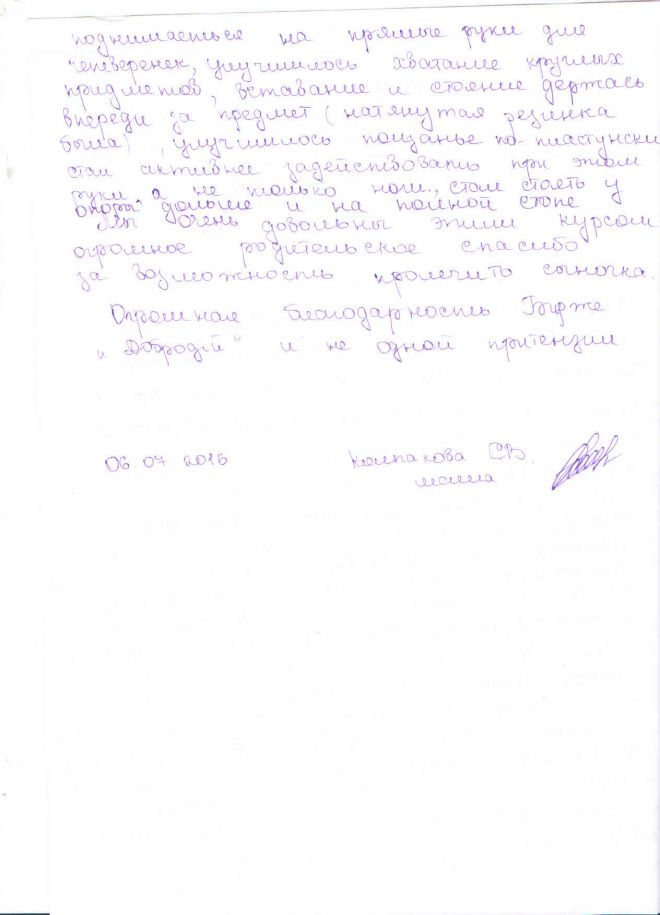 поднимаеться на прямые руки для
четверенек, улучшилось хватание круглых
придметов, вставание и стояние держась
впереди за предмет (натянутая резинка
была), улучшилось ползанье по-пластунски
стал активнее задействовать при этом
руки а не только ноги., стал стоять у
опоры дольше и на полной стопе
Мы очень довольны этим курсом
огромное родительское спасибо
за возможность пролечить сыночка.
Огромная благодарность Бирже
"Добродій" и не одной притензии
06.07.2016 Колпакова С.В.
мама